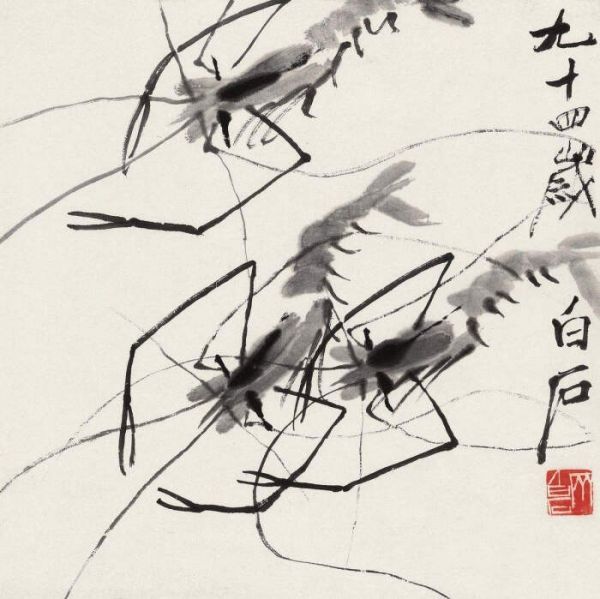 九十四歲白石